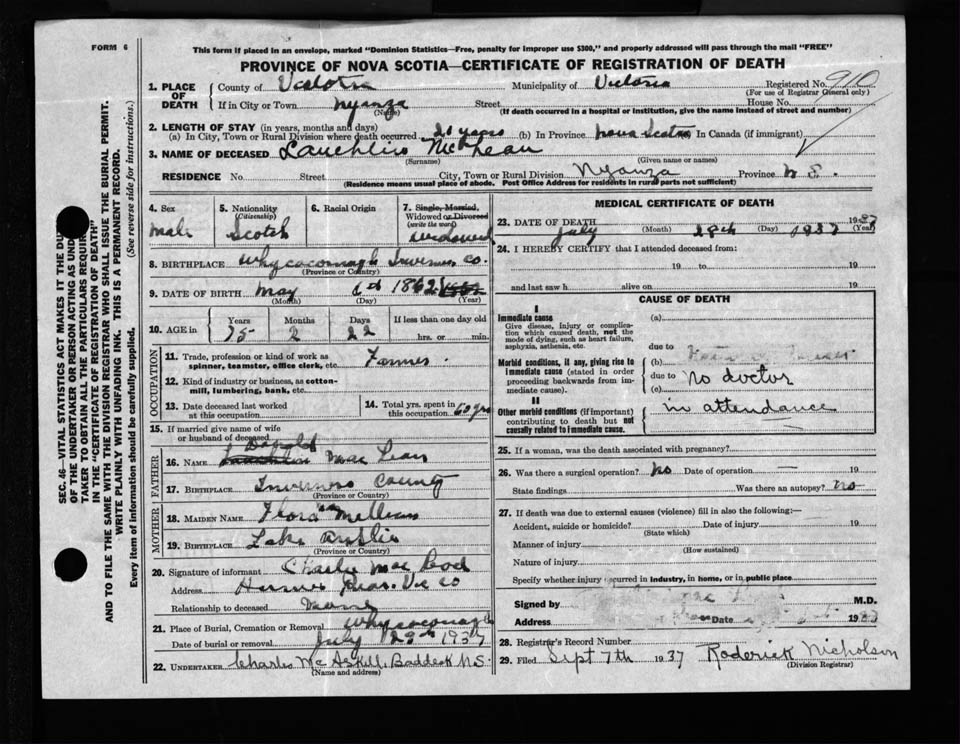 FORM 6
This form if placed in an envelope, marked "Dominion Statistics—Free, penalty for improper use $300," and properly addressed will pass through the mail "FREE"
PROVINCE OF NOVA SCOTIA—CERTIFICATE OF REGISTRATION OF DEATH
SEC. 46—VITAL STATISTICS ACT MAKES IT THE DU
OF THE UNDERTAKER OR PERSON ACTING AS UND
TAKER TO OBTAIN ALL THE PARTICULARS REQUIR
IN THE "CERTIFICATE OF REGISTRATION OF DEATH"
AND TO FILE THE SAME WITH THE DIVISION REGISTRAR WHO SHALL ISSUE THE BURIAL PERMIT.
WRITE PLAINLY WITH UNFADING INK. THIS IS A PERMANENT RECORD.
Every item of information should be carefully supplied. (See reverse side for instructions.)
1. PLACE OF DEATH County of Victoria Municipality of Victoria Registered No. 910
(For use of Registrar General only)
If in City or Town Nyanza Street House No.
(Name) (If death occurred in a hospital or institution, give the name instead of street and number)
2. LENGTH OF STAY (in years, months and days)
(a) In City, Town or Rural Division where death occurred 20 years (b) In Province Nova Scotia In Canada (if immigrant)
3. NAME OF DECEASED Lauchlin McLean
(Surname) (Given name or names)
RESIDENCE No. Street City, Town or Rural Division Nyanza Province N S.
(Residence means usual place of abode. Post Office Address for residents in rural parts not sufficient)
4. Sex male
5. Nationality (Citizenship) Scotch
6. Racial Origin
7. Single, Married, Widowed or Divorced (write the word) widowed
8. BIRTHPLACE Whycocomagh Inverness Co.
(Province or Country)
9. DATE OF BIRTH May 6th 1862
(Month) (Day) (Year)
10. AGE in Years Months Days If less than one day old
75 2 22 hrs. or min.
OCCUPATION
11. Trade, profession or kind of work as spinner, teamster, office clerk, etc. Farmer.
12. Kind of industry or business, as cotton-mill, lumbering, bank, etc.
13. Date deceased last worked at this occupation
14. Total yrs. spent in this occupation 60 yrs
15. If married give name of wife or husband of deceased
FATHER
16. NAME Lauchlin Donald Mac Lean
17. BIRTHPLACE Inverness County
(Province or Country)
MOTHER
18. MAIDEN NAME Flora
19. BIRTHPLACE Lake Ainslie
(Province or Country)
20. Signature of informant Charlie Mac Leod
Address Vic Co
Relationship to deceased none
21. Place of Burial, Cremation or Removal Whycocomagh
Date of burial or removal July 29th 1937
22. UNDERTAKER Charles McAskill, Baddeck N.S.
(Name and address)
MEDICAL CERTIFICATE OF DEATH
23. DATE OF DEATH July 28th 1937 1937
(Month) (Day) (Year)
24. I HEREBY CERTIFY that I attended deceased from:
19 to 19
and last saw h alive on 19
CAUSE OF DEATH
I
Immediate cause (a)
Give disease, injury or complication which caused death, not the mode of dying, such as heart failure, asphyxia, asthenia, etc.
due to
Morbid conditions, if any, giving rise to immediate cause (stated in order proceeding backwards from immediate cause). (b)
due to no doctor
(c)
II
Other morbid conditions (if important) contributing to death but not causally related to immediate cause.
in attendance
25. If a woman, was the death associated with pregnancy?
26. Was there a surgical operation? No Date of operation — 19
State findings Was there an autopsy? No
27. If death was due to external causes (violence) fill in also the following:—
Accident, suicide or homicide? Date of injury 19
(State which)
Manner of injury
(How sustained)
Nature of injury
Specify whether injury occurred in industry, in home, or in public place
Signed by M.D.
Address Date 19
28. Registrar's Record Number
29. Filed Sept 7th 1937 Roderick Nicholson
(Division Registrar)